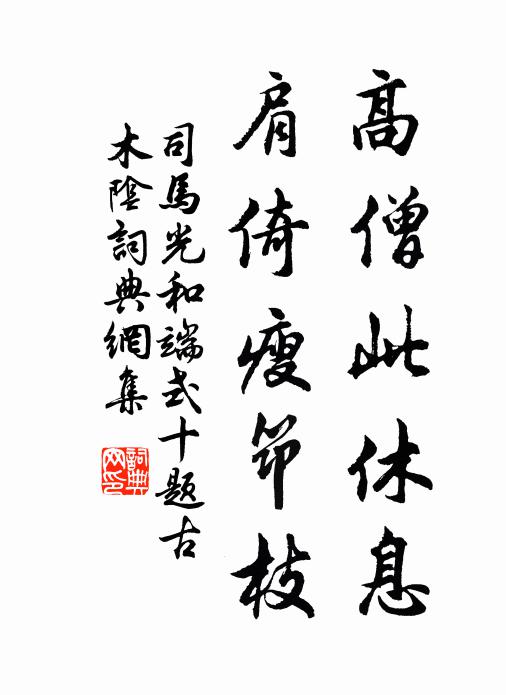 高僧此休息
肩倚瘦筇枝
司馬光和端式十題古
木陰詞典網集
詞典
网印